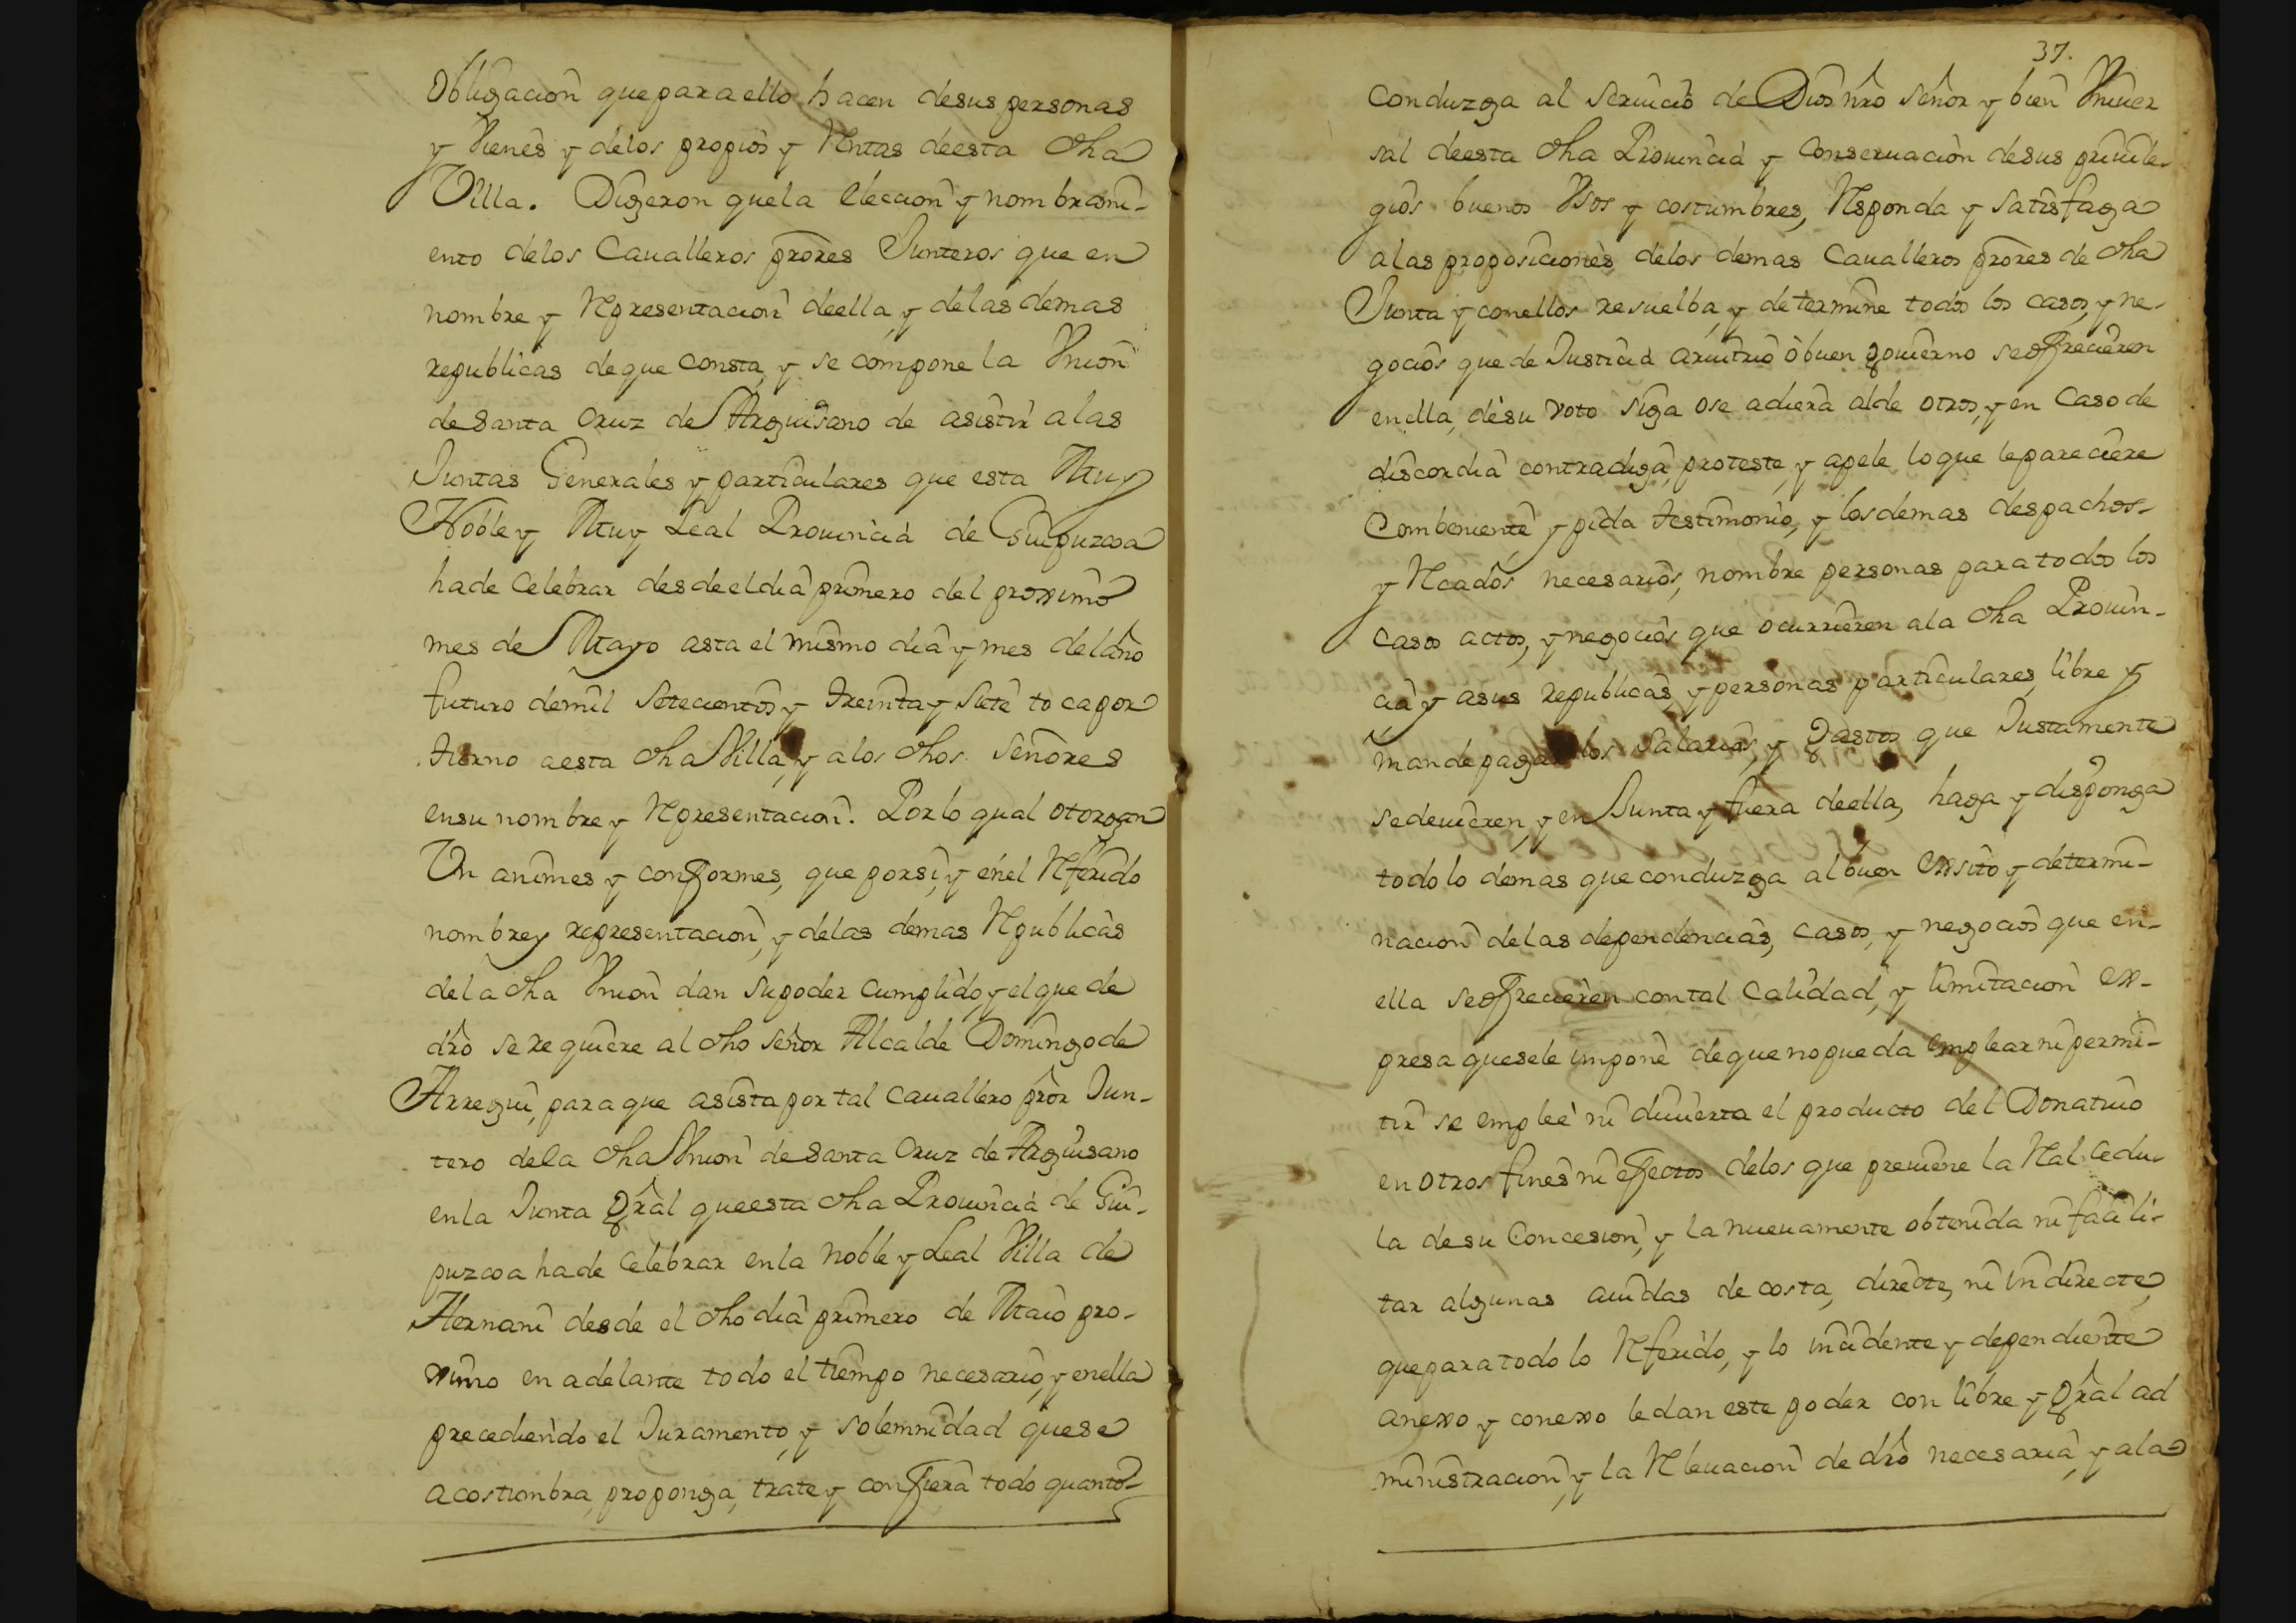 Obligacion que para ello hacen de sus personas
y Vienes y de los propios y Rentas de esta dha
Villa. Digeron que la eleccion y nombrami-
ento de los Caualleros prores Junteros que en
nombre y Representacion de ella, y de las demas
republicas de que consta, y se compone la Vnion
de Santa Cruz de Arguisano de asistir a las
Juntas Generales y particulares que esta Muy
Noble y Muy Leal Prouincia de Guipuzcoa
ha de Celebrar desde el dia primero del proximo
mes de Mayo asta el mismo dia y mes del año
futuro de mil Setecientos y treinta y Siete toca por
turno a esta dha Villa, y a los dhos Señores
en su nombre y Representacion. Por lo qual otorgan
Vnanimes y conformes, que por si, y en el Referido
nombre y representacion, y de las demas Republicas
de la dha Vnion dan su poder cumplido, y el que de
dro se requiere al dho Señor Alcalde Domingo de
Arregui, para que asista por tal Cauallero pror Jun-
tero de la dha Vnion de Santa Cruz de Arguisano
en la Junta Gral que esta dha Prouincia de Gui-
puzcoa ha de Celebrar en la Noble y Leal Villa de
Hernani desde el dho dia primero de Maio pro-
ximo en adelante todo el tiempo necesario, y en ella
precediendo el Juramento, y solemnidad que se
acostumbra, proponga, trate y confiera todo quanto
37.
Conduzga al seruicio de Dios nro señor y bien Vniuer
sal de esta dha Prouincia y Conseruacion de sus priuile-
gios buenos Vsos y costumbres, Responda y satisfaga
a las proposiciones de los demas Caualleros prores de dha
Junta y con ellos resuelba, y determine todos los casos, y ne-
gocios que de Justicia aruitrio ò buen gouierno se ofrecieren
en ella, dè su voto siga o se adiera al de otros, y en Caso de
discordia contradiga, proteste, y apele lo que le pareciere
Combeniente, y pida testimonio, y los demas despachos
y Rcados necesarios, nombre personas para todos los
casos actos, y negocios que ocurrieren a la dha Prouin-
cia y a sus republicas, y personas particulares, libre y
mande pagar los salarios, y gastos que Justamente
se deuieren, y en Junta y fuera de ella, haga y disponga
todo lo demas que conduzga al buen exsito y determi-
nacion de las dependencias, casos, y negocios que en-
ella se ofrecieren con tal calidad, y limitacion ex-
presa que se le impone de que no pueda emplear ni permi-
tir se empleè ni diuierta el producto del Donatiuo
en otros fines ni efectos de los que preuiene la Real Cedu-
la de su Concesion, y la nueuamente obtenida ni facili-
tar algunas aiudas de costa, directe, ni indirecte,
que para todo lo Referido, y lo incidente y dependiente
anexo y conexo le dan este poder con libre y Gral ad
ministracion, y la Releuacion de dro necesaria, y a la